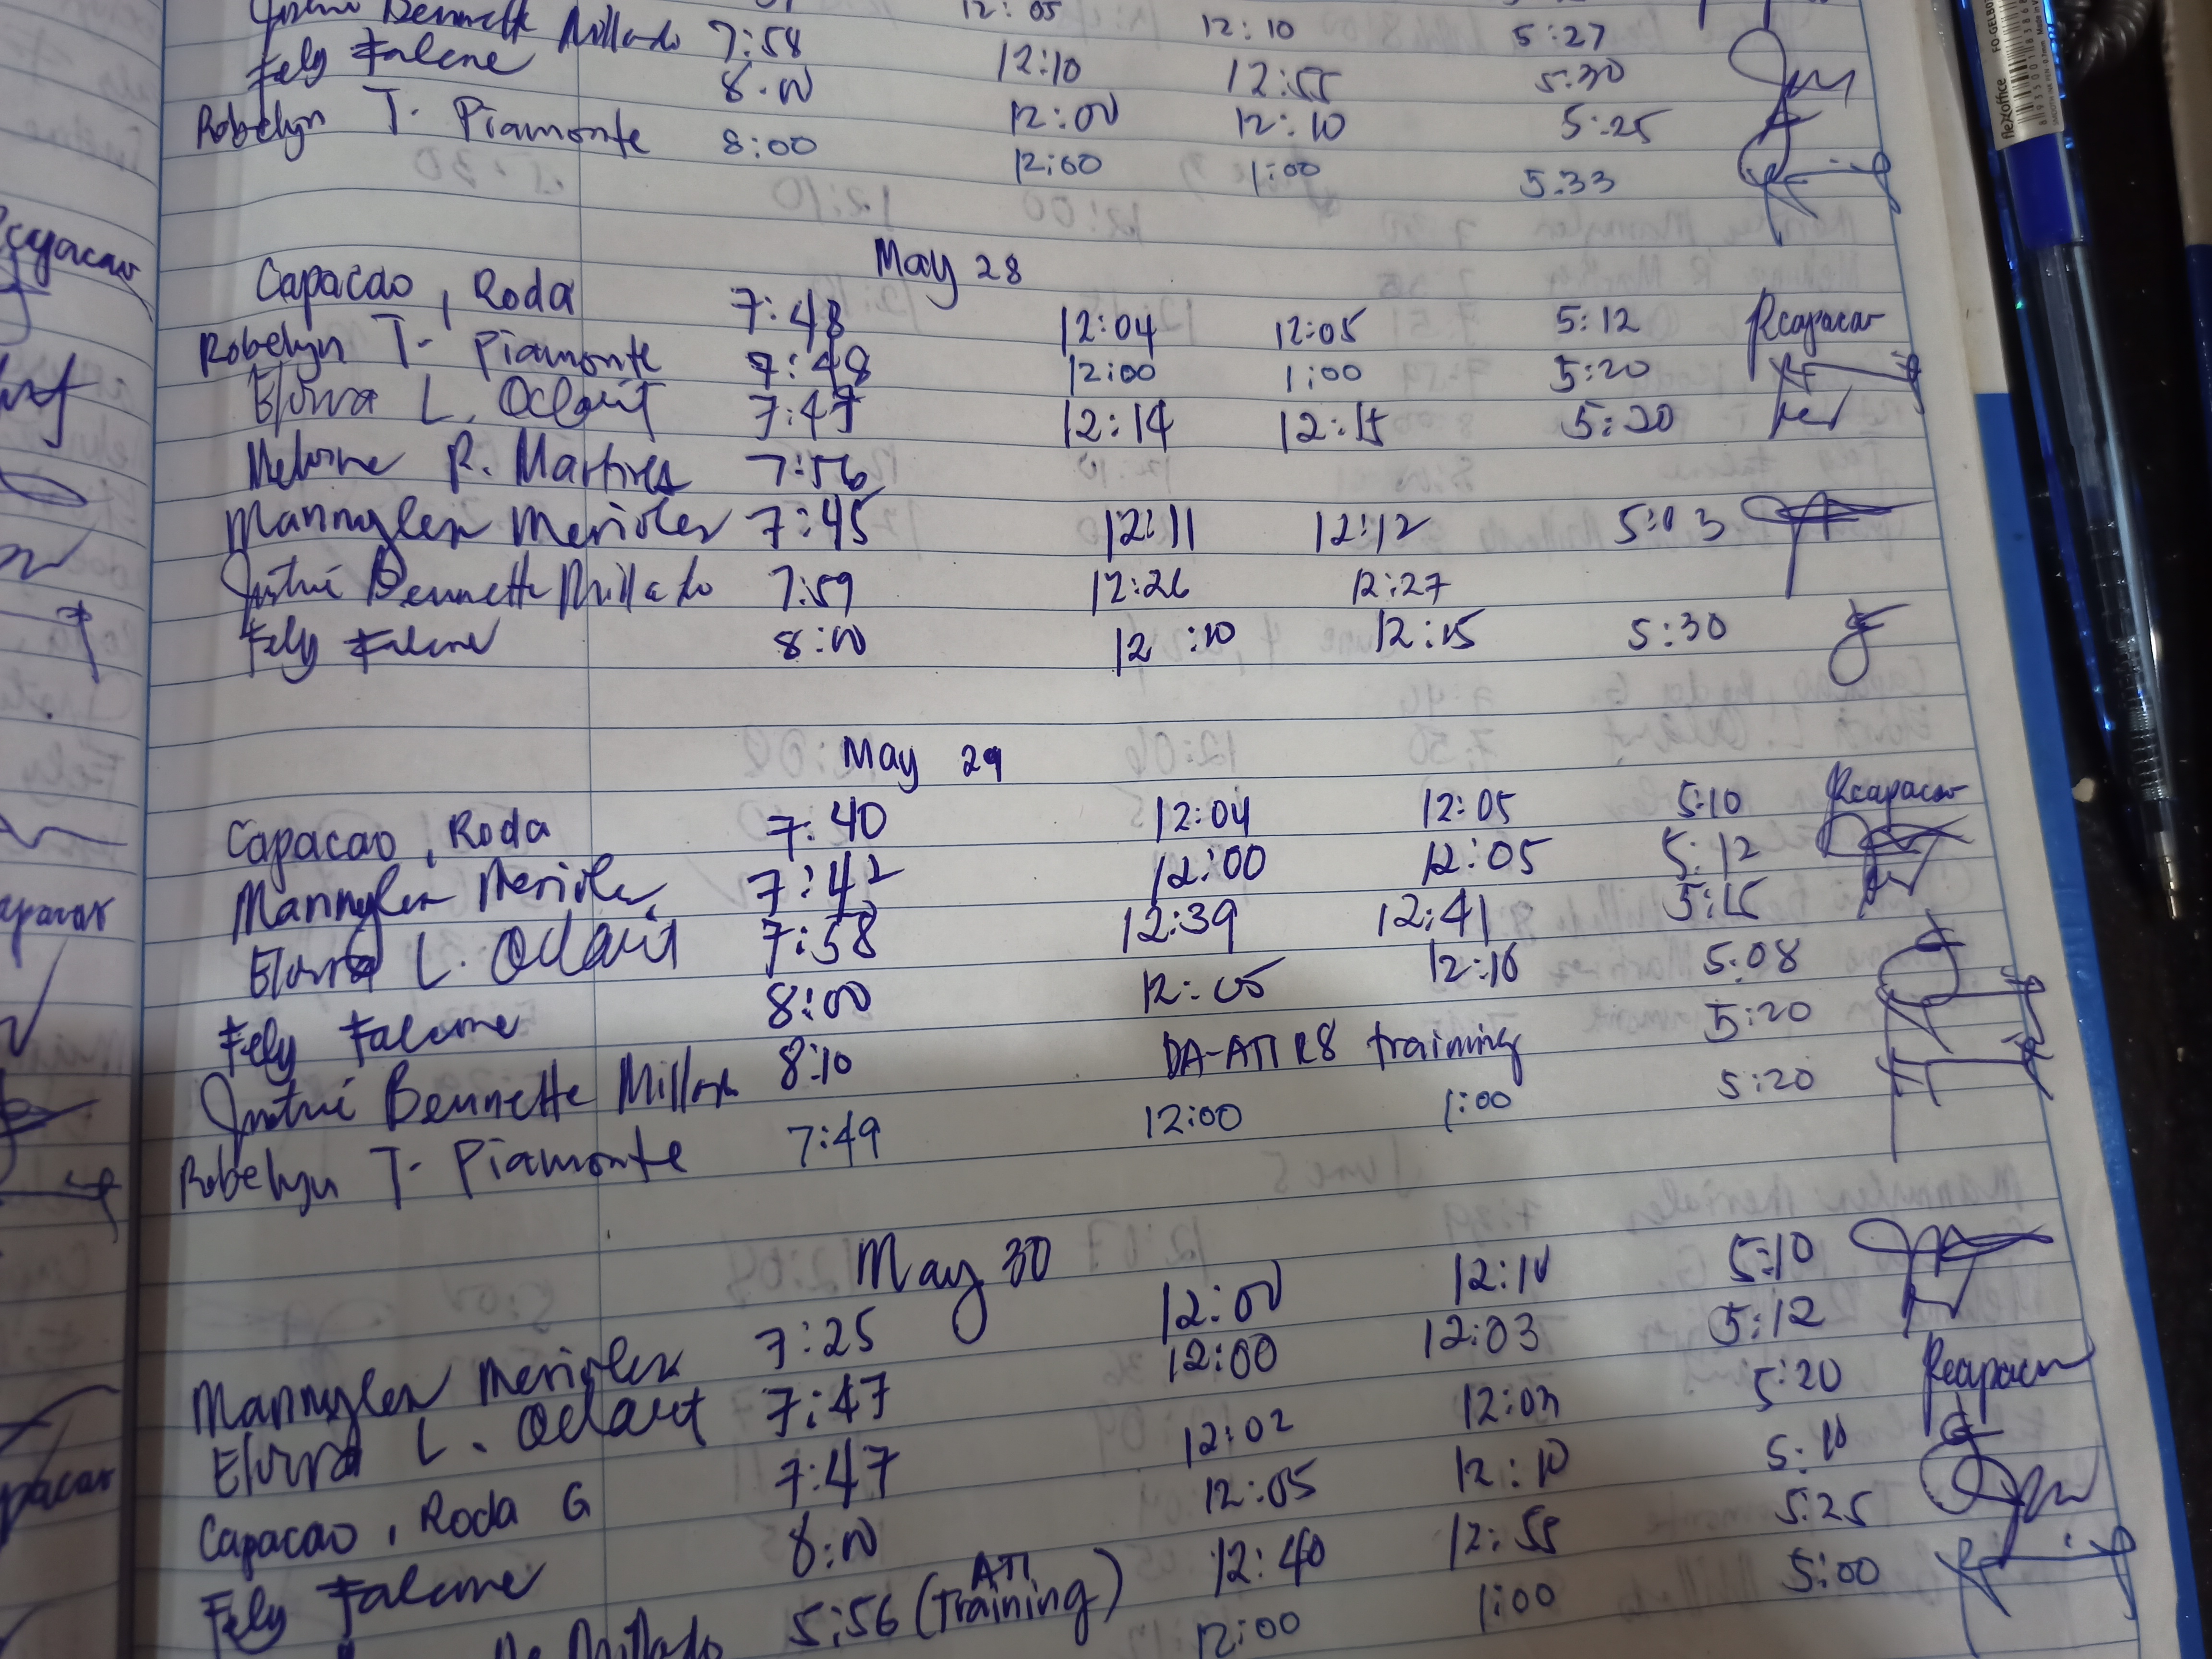 12:05 12:10 5:27
Bennette Millado 7:58 12:10 12:55 5:30
Fely Falcone 8:00 12:00 12:10 5:25
Robelyn T. Piamonte 8:00 12:00 1:00 5:33
May 28
Capacao, Roda 7:48 12:04 12:05 5:12 Rcapacao
Robelyn T. Piamonte 7:48 12:00 1:00 5:20
Elvira L. Oclarit 7:47 12:14 12:15 5:20
Melvine R. Martires 7:56
Mannylen Merioles 7:45 12:11 12:12 5:03
Justine Bennette Millado 7:59 12:26 12:27
Fely Falcone 8:00 12:10 12:15 5:30
May 29
Capacao, Roda 7:40 12:04 12:05 5:10 Rcapacao
Mannylen Merioles 7:42 12:00 12:05 5:12
Elvira L. Oclarit 7:58 12:39 12:41 5:15
Fely Falcone 8:00 12:05 12:10 5:08
Justine Bennette Millado 8:10 DA-ATI R8 training 5:20
Robelyn T. Piamonte 7:49 12:00 1:00 5:20
May 30
Mannylen Merioles 7:25 12:00 12:10 5:10
Elvira L. Oclarit 7:47 12:00 12:03 5:12
Capacao, Roda G 7:47 12:02 12:03 5:20 Rcapacao
Fely Falcone 8:00 12:05 12:10 5:10
Millado 5:56 (ATI Training) 12:40 12:55 5:25
12:00 1:00 5:00
flexoffice
FO-GELB0